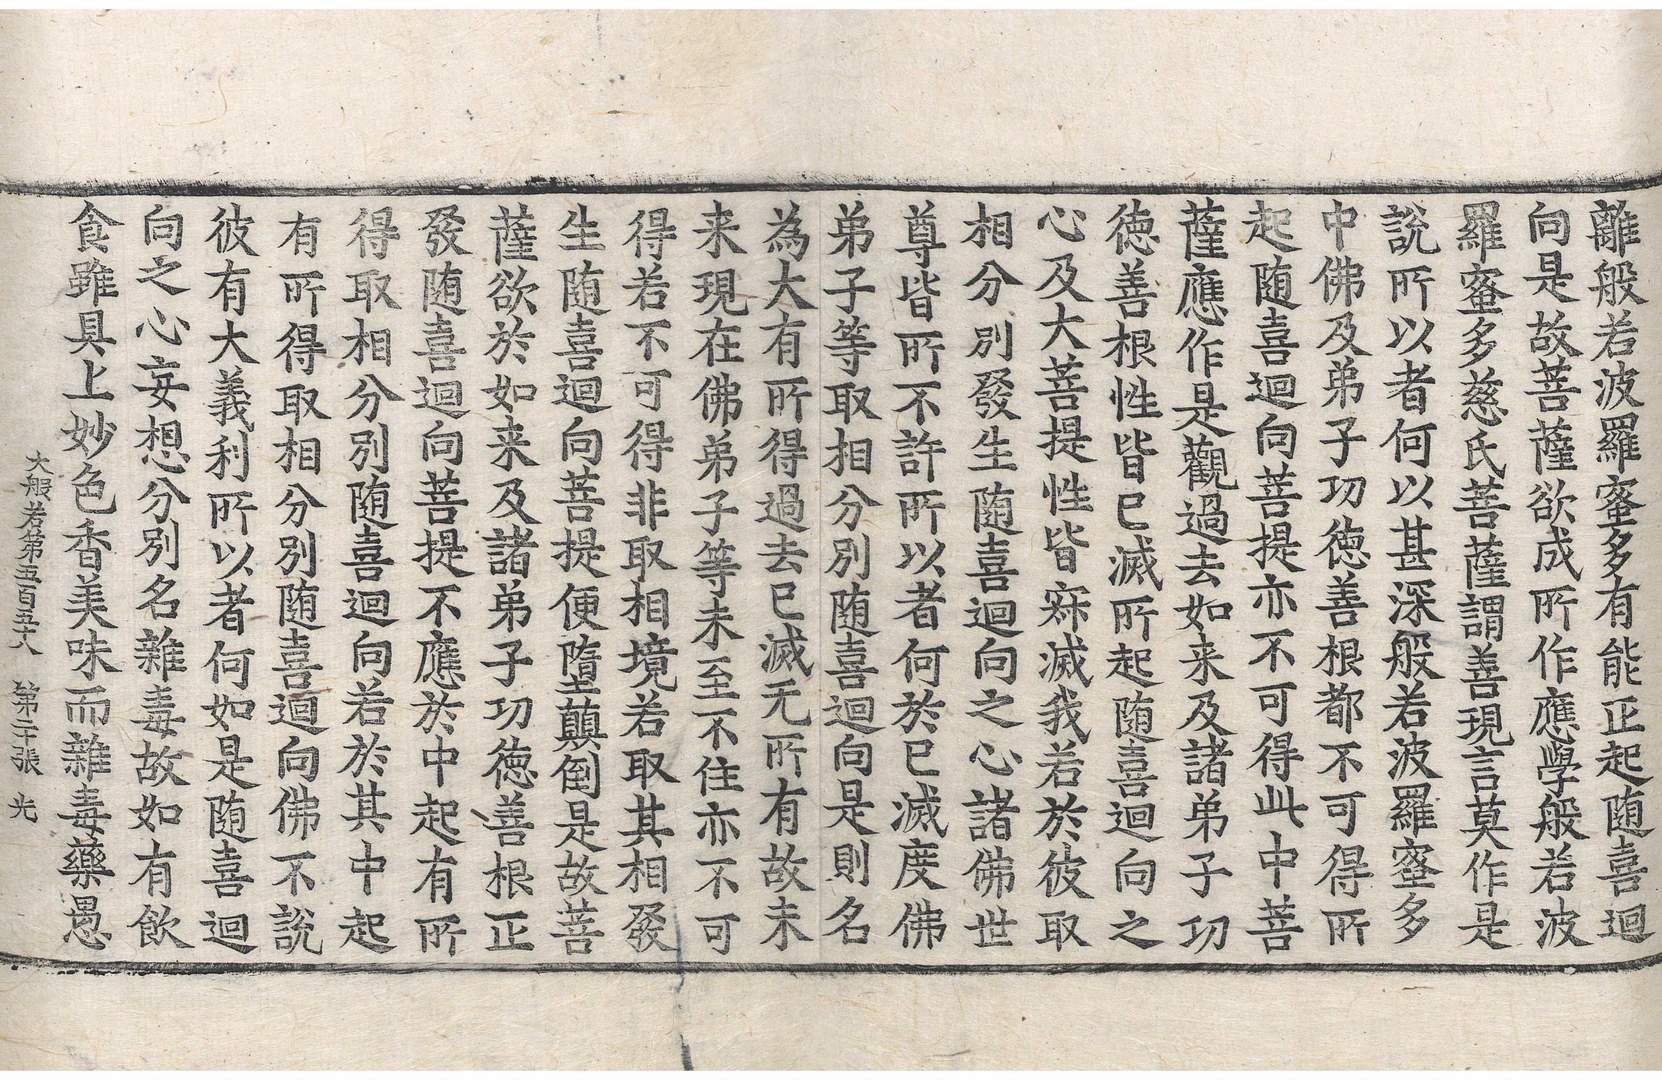 離般若波羅蜜多有能正起随喜迴
向是故菩薩欲成所作應學般若波
羅蜜多慈氏菩薩謂善現言莫作是
說所以者何以甚深般若波羅蜜多
中佛及弟子功徳善根都不可得所
起随喜迴向菩提亦不可得此中菩
薩應作是觀過去如来及諸弟子功
徳善根性皆已滅所起随喜迴向之
心及大菩提性皆寂滅我若於彼取
相分別發生随喜迴向之心諸佛世
尊皆所不許所以者何於已滅度佛
弟子等取相分別随喜迴向是則名
為大有所得過去已滅无所有故未
来現在佛弟子等未至不住亦不可
得若不可得非取相境若取其相發
生随喜迴向菩提便墮顛倒是故菩
薩欲於如来及諸弟子功徳善根正
發随喜迴向菩提不應於中起有所
得取相分別随喜迴向若於其中起
有所得取相分別随喜迴向佛不說
彼有大義利所以者何如是随喜迴
向之心妄想分別名雜毒故如有飲
食雖具上妙色香美味而雜毒藥愚
大般若第五百五十六 第二十張 光